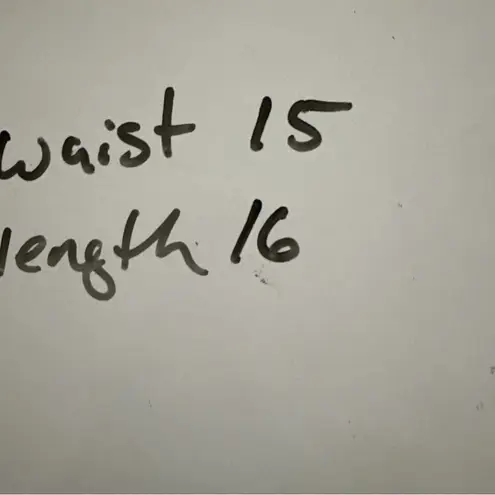 waist 15
length 16